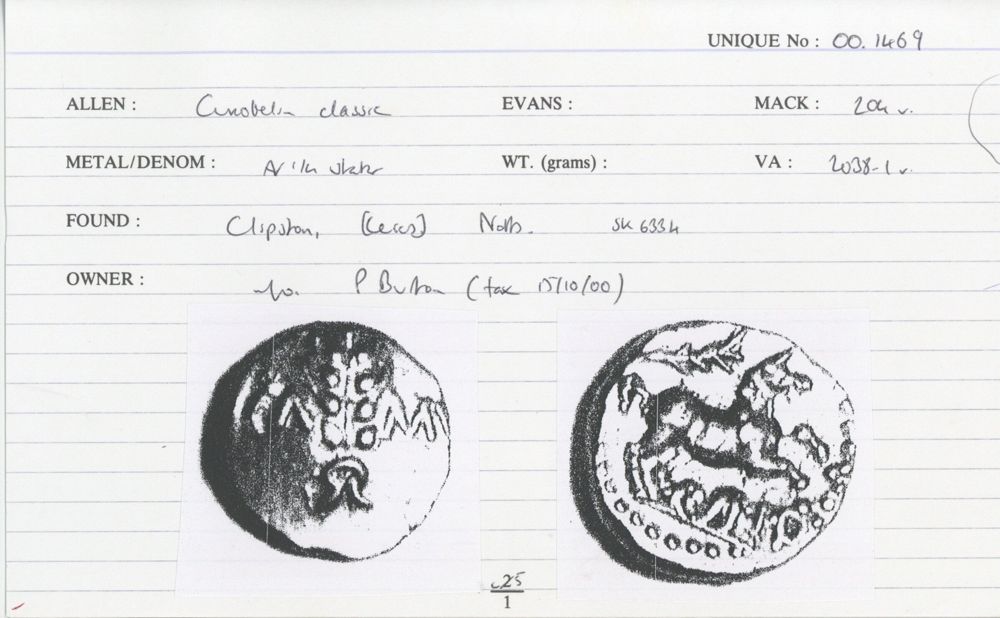 UNIQUE No : 00.1469
ALLEN : Cunobelin classic EVANS : MACK : 204 v.
METAL/DENOM : AV 1/4 stater WT. (grams) : VA : 2038-1 v.
FOUND : Clipston, Notts. SK 6334
OWNER : P Burton (fax 15/10/00)
c25
1